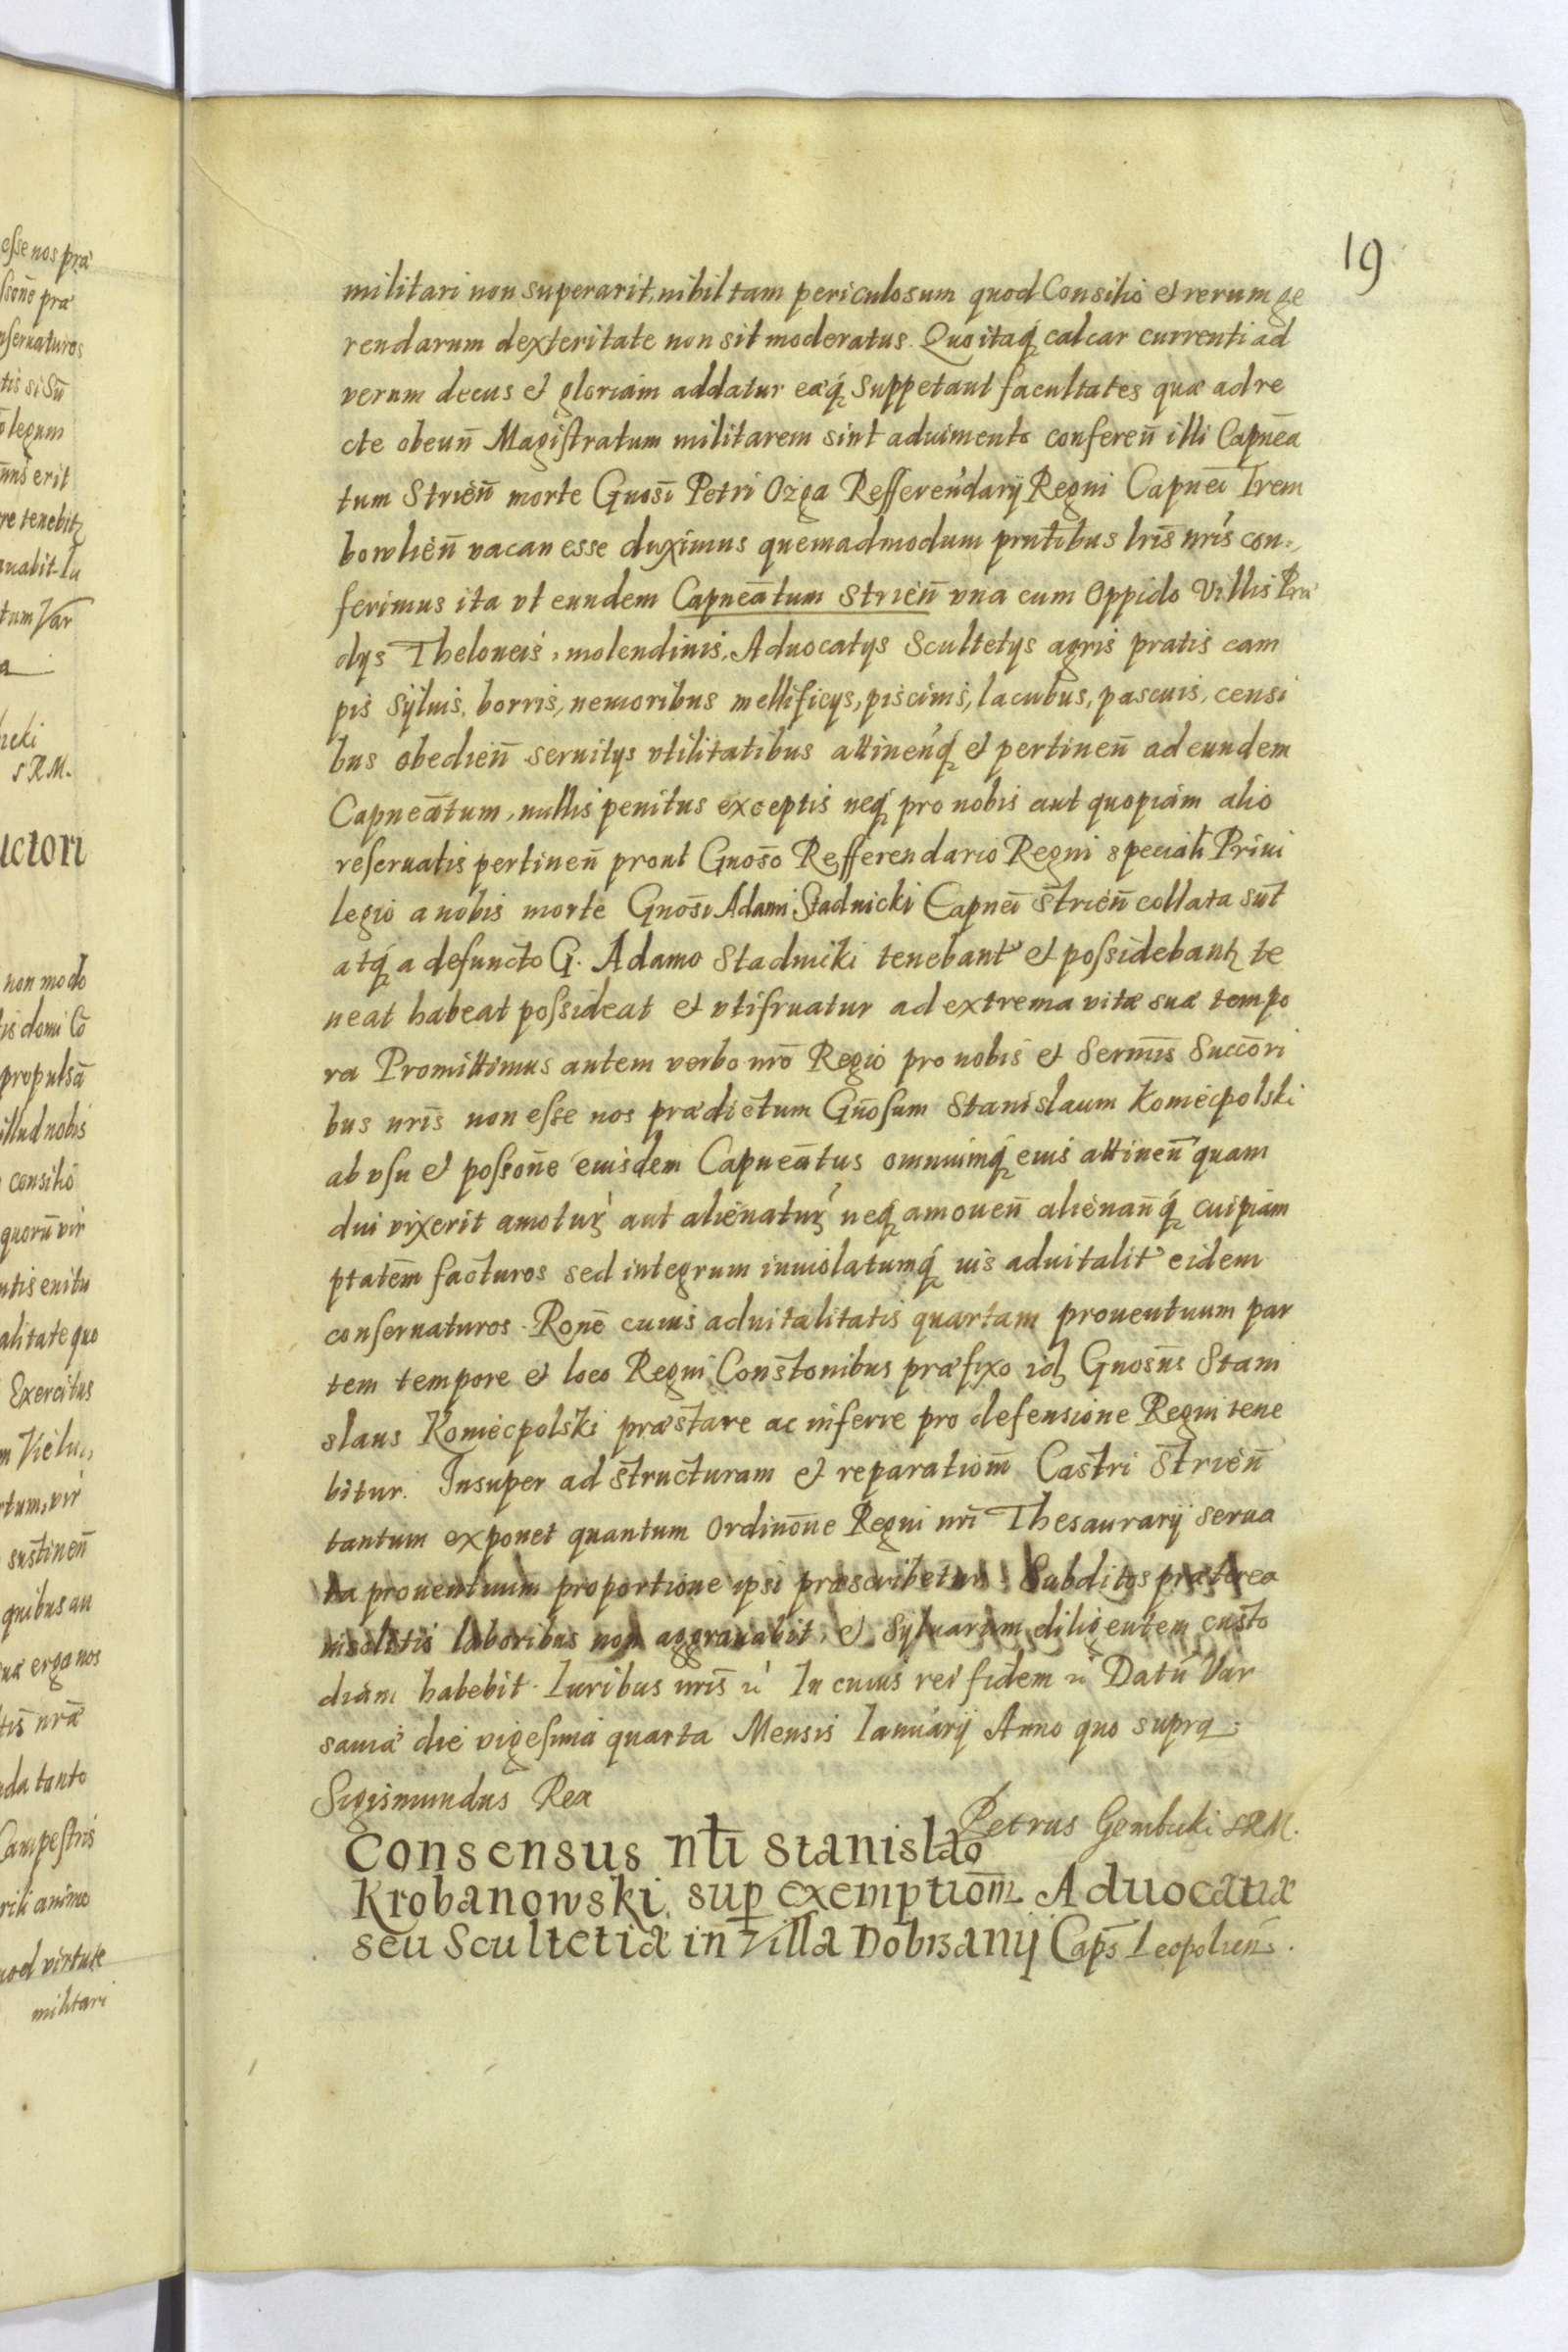 esse nos præ
ssionē præ
nseruaturos
tis si sū
legum
erit
re tenebitʒ
auabit Iu
tum Var
a
S R M.
uctori
non modo
is domi Cō
propulsā
illud nobis
consilio
quorū vir
ntis enitu
alitate quo
Exercitus
m Vielu,,
rtum, vir
sustinen̄
quibus an
uæ erga nos
tis nrā
nda tanto
Campestris
rili animo
uod virtute
militari
19
militari non superarit, nihil tam periculosum quod Consilio et rerum ge
rendarum dexteritate non sit moderatus. Quo itaq́ calcar currenti ad
verum decus et gloriam addatur eaq́ suppetant facultates quæ ad re
cte obeun̄ Magistratum militarem sint aduimento conferen̄ illi Capnēa
tum Strien̄ morte Gnosī Petri Ożga Refferendarij Regni Capneī Trem
bowlien̄ vacan esse duximus quemadmodum pntībus lrīs nrīs con-,
ferimus ita vt eundem Capneātum Strien̄ vna cum Oppido Villis Præ
dÿs Theloneis, molendinis, Aduocatÿs Scultetÿs agris pratis cam
pis Syluis, borris, nemoribus mellificÿs, piscinis, lacubus, pascuis, censi
bus obedien̄ seruitÿs vtilitatibus attinenq́ et pertinen̄ ad eundem
Capneātum, nullis penitus exceptis neq́ pro nobis aut quopiam alio
reseruatis pertinen̄ prout Gnosō Refferendario Regni speciali Priui
legio a nobis morte Gnosī Adami Stadnicki Capneī Strien̄ collata sūt
atq́ a defuncto G. Adamo Stadnicki tenebant' et possidebantʒ te
neat habeat possideat et vtifruatur ad extrema vitæ suæ tempo
ra Promittimus autem verbo nrō Regio pro nobis et Sermīs Succōri
bus nrīs non esse nos prædictum Gnōsum Stanislaum Koniecpolski
ab vsu et possonē eiusdem Capneātus omniumq́ eius attinen̄ quam
diu vixerit amoturʒ aut alienaturʒ neq́ amouen̄ alienan̄q́ cuipiam
ptatēm facturos sed integrum inuiolatumq́ ius aduitalit' eidem
conseruaturos. Ronē cuius aduitalitatis quartam prouentuum par
tem tempore et loco Regni Constōnibus præfixo idʒ Gnosūs Stani
slaus Koniecpolski præstare ac inferre pro defensione Regni tene
bitur. Insuper ad structuram et reparationm̄ Castri Strien̄
tantum exponet quantum Ordinōne Regni nrī Thesaurarij serua
ta prouentuum proportione ipsi præscribetur. Subditos præterea
insolitis laboribus non aggrauabit, et Syluarum diligentem custo
diam habebit. Iuribus nrīs ꝛ In cuius rei fidem ꝛ Datū Var
sauiæ die vigesima quarta Mensis Ianuarij Anno quo supra:
Sigismundus Rex
Petrus Gembicki S R M.
Consensus nltī Stanislao
Krobanowski, sup exemptiom̄ Aduocatiæ
seu Scultetiæ in Villa Dobrzanÿ Caps Leopolien̄s.